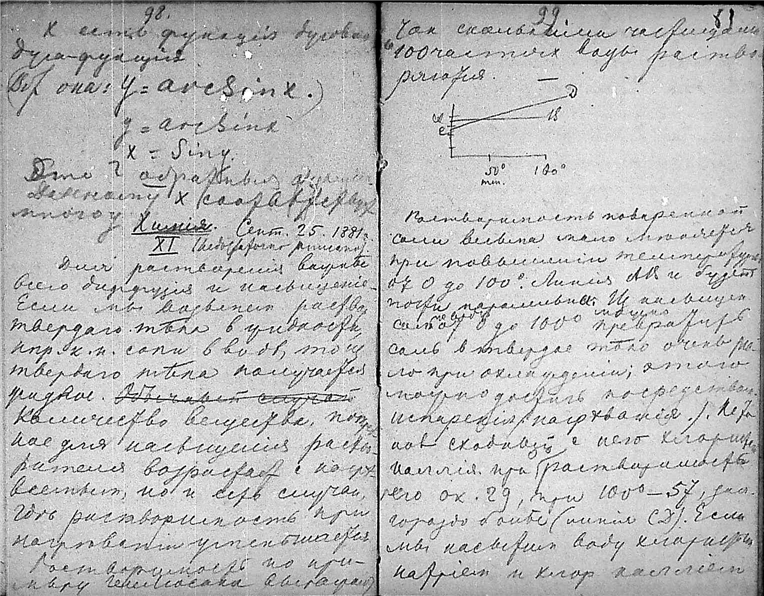 98.
X есть функция дуговая
дуга-функция
y = arcsinx.)
y = arcsinx
x = Siny.
Это ? обратныя функции
Данному x соответствует
много y
Химия. Сент. 25. 1881.
XI
Для растворения важнее
всего диффузия и насыщение.
Если мы возьмем раствор
твердаго тѣла в жидкости,
напр. к. н. соли в водѣ, то из
твердаго тѣла получается
жидкое. Обычный случай
Количество вещества, потреб
ное для насыщения раство
рителя возрастает с
но и есть случаи,
гдѣ растворимость при
нагрѣвании уменьшается
Растворимость по при
мѣру Гейлюсака выражают
99
81
так сколькими частями
в 100 частях воды раство
ряется.
D
B
A
C
50°
100°
Растворимость поваренной
соли весьма мало меняется
при повышении температуры
от 0 до 100°. Линия AB и будет
почти параллельна. Из насыщен
от 0 до 100° превратить
соль в твердое тѣло очень ма
ло при охлаждении; этого
можно достичь посредством
испарения нагрѣвания.).
нов сходный с него хлористый
каллия при растворимость
его ок. 29, при 100° — 57,
гораздо более (линия CD). Если
мы насытим воду хлористым
натрием и хлор каллием